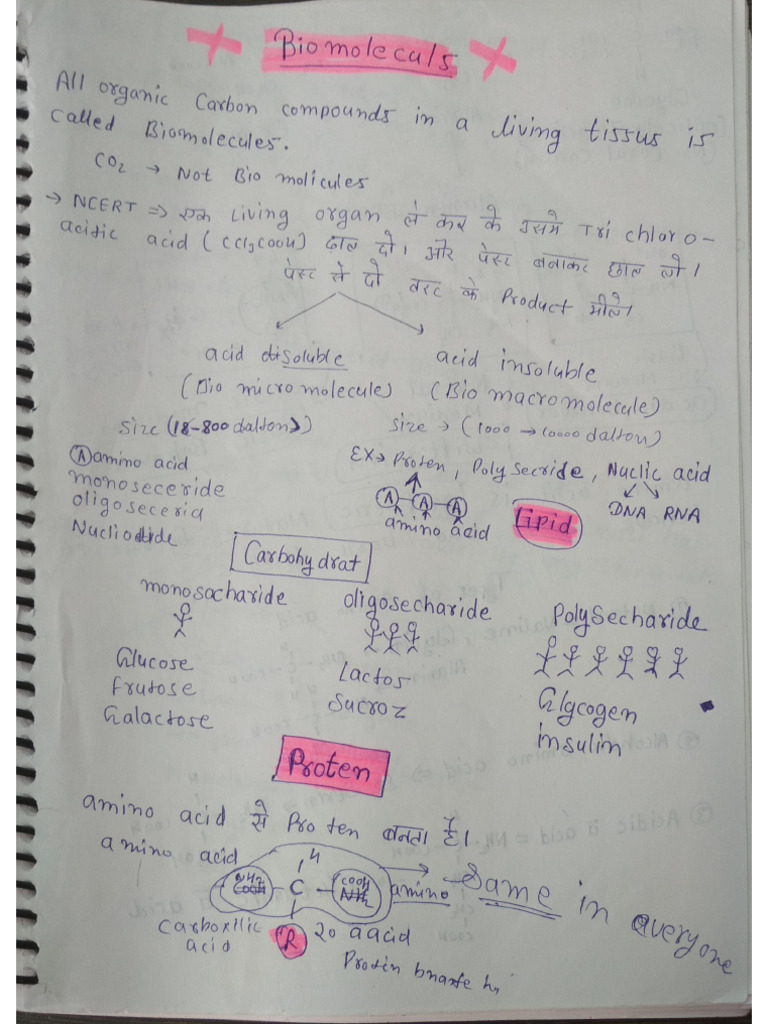 Biomoleculs
All organic Carbon compounds in a living tissus is
called Biomolecules.
CO2 → Not Bio molicules
→ NCERT ⇒ एक Living organ ले कर के उसमे Tri chloro-
acidic acid (CCl3COOH) डाल दो। और पेस्ट बनाकर छान लो।
पेस्ट से दो तरह के Product मीले।
acid disoluble
acid insoluble
(Bio micromolecule)
(Bio macromolecule)
Size (18-800 dalton)
Size → (1000 → 10000 dalton)
Ⓐ amino acid
monoseceride
oligoseceria
Nucliotide
EX→ Proten, Poly Secride, Nuclic acid
A A A
amino acid
Lipid
DNA RNA
Carbohydrat
monosacharide
oligosecharide
PolySecharide
Glucose
frutose
Galactose
Lactos
Sucroz
Glycogen
insulin
Proten
amino acid से Proten बनता है।
amino acid
H
NH2 COOH C COOH NH2 amino → Same in everyone
Carboxilic acid
R 20 aacid
Protin bnate h,